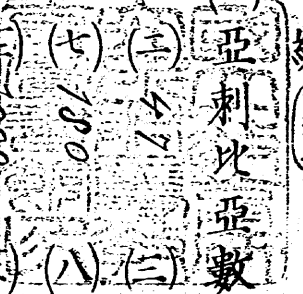 亞刺比亞數
(二) 47 (三)
(七) 180 (八)